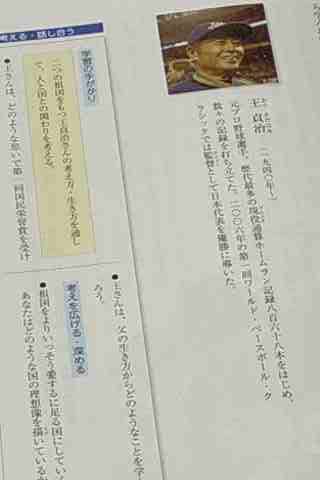 王貞治
おう さだはる
一九四〇年～
元プロ野球選手。歴代最多の現役通算ホームラン記録八百六十八本をはじめ、
数々の記録を打ち立てた。二〇〇六年の第一回ワールド・ベースボール・ク
ラシックでは監督として日本代表を優勝に導いた。
考える・話し合う
学習の手がかり
二つの祖国をもつ王貞治さんの考え方・生き方を通し
て、人と国との関わりを考える。
●王さんは、どのような思いで第一回国民栄誉賞を受け
●王さんは、父の生き方からどのようなことを学
ろう。
考えを広げる・深める
●祖国をよりいっそう愛するに足る国にしていく
あなたはどのような国の理想像を描いている